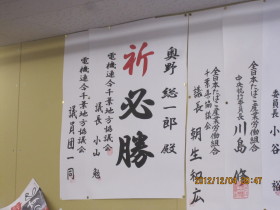 奥野総一郎殿
祈必勝
電機連合千葉地方協議会
議長 小山 勉
電機連合千葉地方協議会
議員団一同
全日本たばこ産業労働組合
中央執行委員長 川島 修
全日本たばこ産業労働組合
千葉県協議会
議長 朝生和広
委員長 小谷
2012/12/04